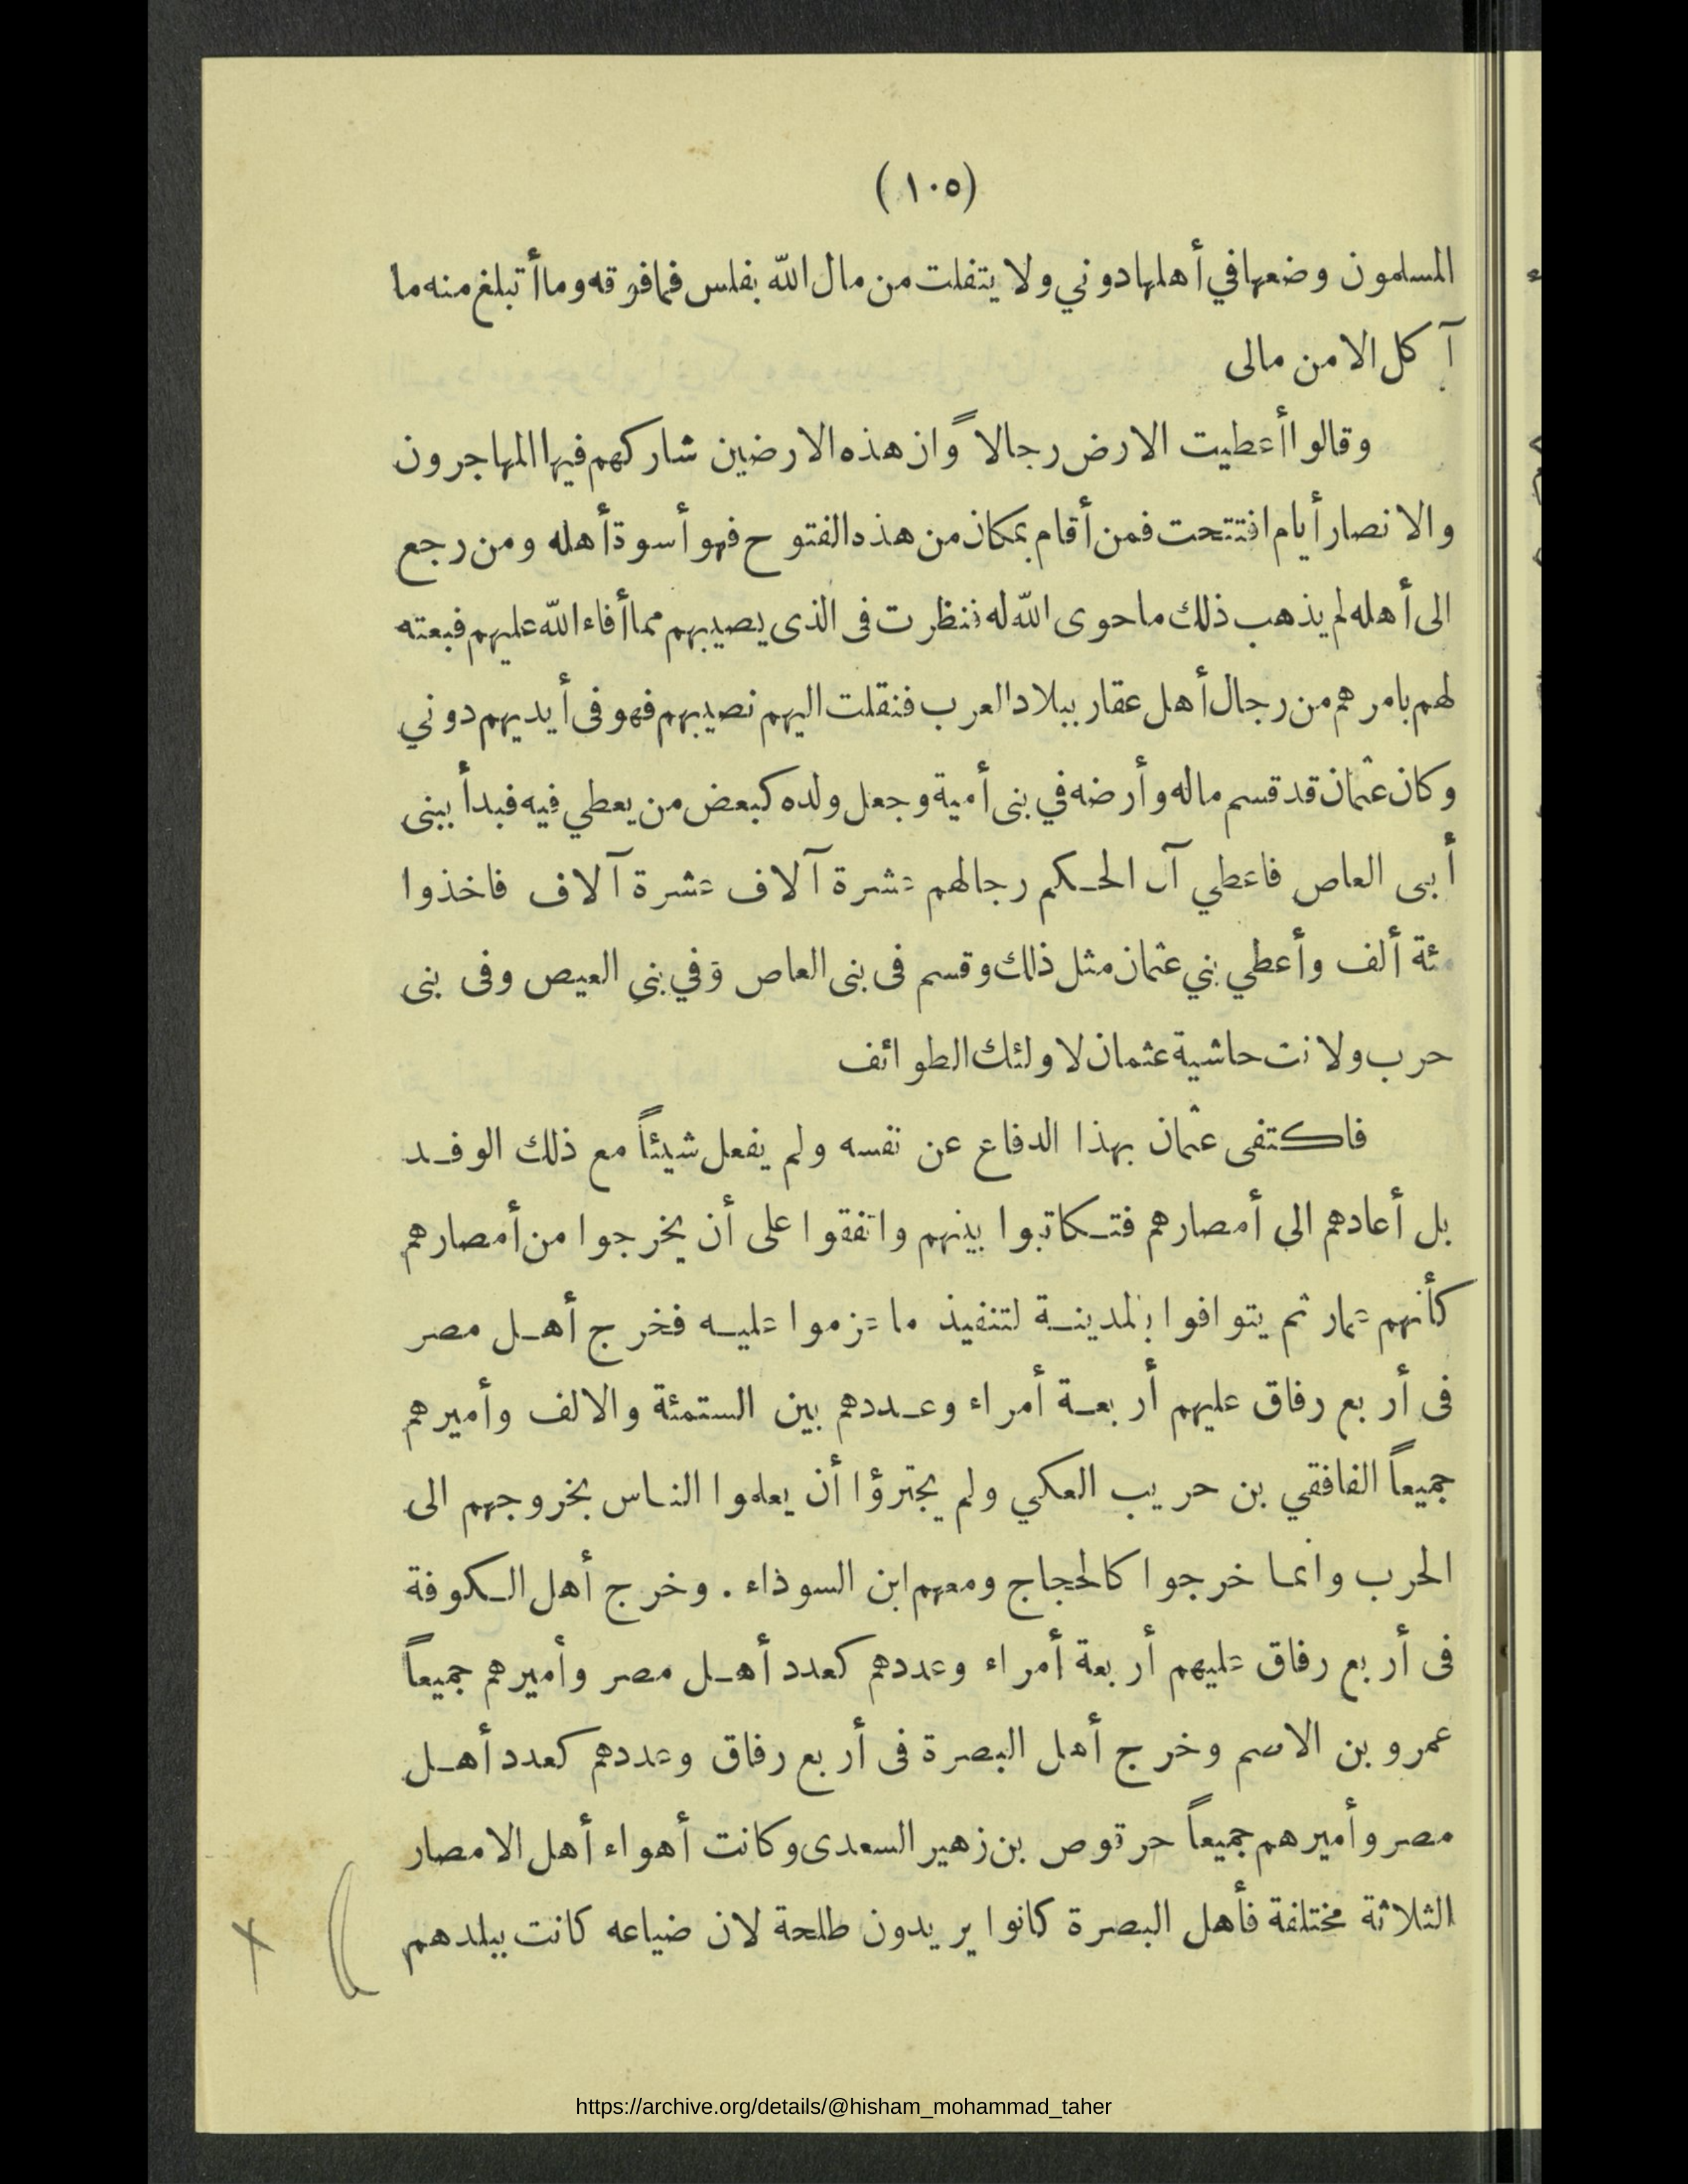 (١٠٥)
المسلمون وضعها في أهلها دوني ولا يتفلت من مال الله بفلس فما فوقه وما أتبلغ منه ما
آكل الا من مالى
وقالوا أعطيت الارض رجالاً وان هذه الارضين شاركهم فيها المهاجرون
والانصار أيام افتتحت فمن أقام بمكان من هذه الفتوح فهو أسوة أهله ومن رجع
الى أهله لم يذهب ذلك ما حوى الله له فنظرت فى الذى يصيبهم مما أفاء الله عليهم فبعته
لهم بامرهم من رجال أهل عقار ببلاد العرب فنقلت اليهم نصيبهم فهو فى أيديهم دوني
وكان عثمان قد قسم ماله وأرضه في بنى أمية وجعل ولده كبعض من يعطي فيه فبدأ ببنى
أبى العاص فاعطي آل الحكم رجالهم عشرة آلاف عشرة آلاف فاخذوا
مئة ألف وأعطي بني عثمان مثل ذلك وقسم فى بنى العاص وفي بني العيص وفى بنى
حرب ولانت حاشية عثمان لاولئك الطوائف
فاكتفى عثمان بهذا الدفاع عن نفسه ولم يفعل شيئاً مع ذلك الوفد
بل أعادهم الى أمصارهم فتكاتبوا بينهم واتفقوا على أن يخرجوا من أمصارهم
كأنهم عمار ثم يتوافوا بالمدينة لتنفيذ ما عزموا عليه فخرج أهل مصر
فى أربع رفاق عليهم أربعة أمراء وعددهم بين الستمئة والالف وأميرهم
جميعاً الغافقي بن حريب العكي ولم يجترؤا أن يعلموا الناس بخروجهم الى
الحرب وانما خرجوا كالحجاج ومعهم ابن السوداء . وخرج أهل الكوفة
فى أربع رفاق عليهم أربعة أمراء وعددهم كعدد أهل مصر وأميرهم جميعاً
عمرو بن الاصم وخرج أهل البصرة فى أربع رفاق وعددهم كعدد أهل
مصر وأميرهم جميعاً حرقوص بن زهير السعدى وكانت أهواء أهل الامصار
الثلاثة مختلفة فأهل البصرة كانوا يريدون طلحة لان ضياعه كانت ببلدهم
https://archive.org/details/@hisham_mohammad_taher